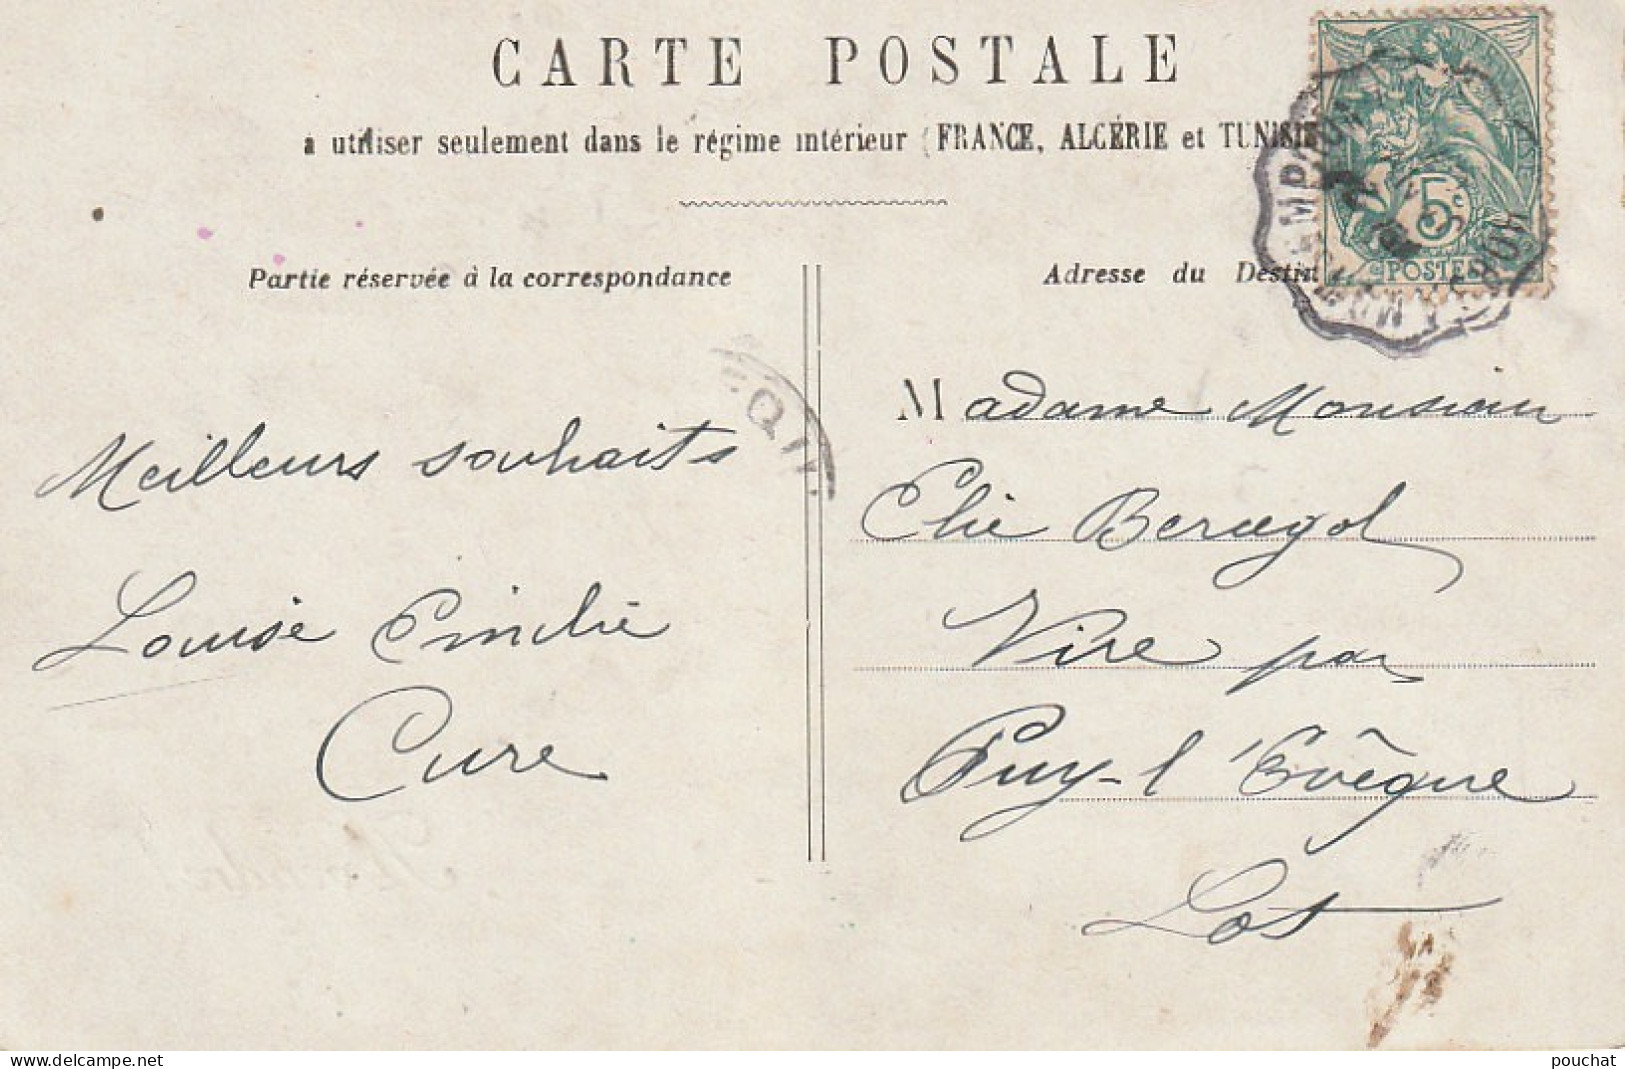 CARTE POSTALE
à utiliser seulement dans le régime intérieur (FRANCE, ALGÉRIE et TUNISIE
Partie réservée à la correspondance
Adresse du Destin
5c
POSTES
Meilleurs souhaits
Louise Emilie
Cure
Madame Monsieur
Elie Beraygol
Vire par
Puy-l'Evêque
Lot
delcampe.net
pouchat